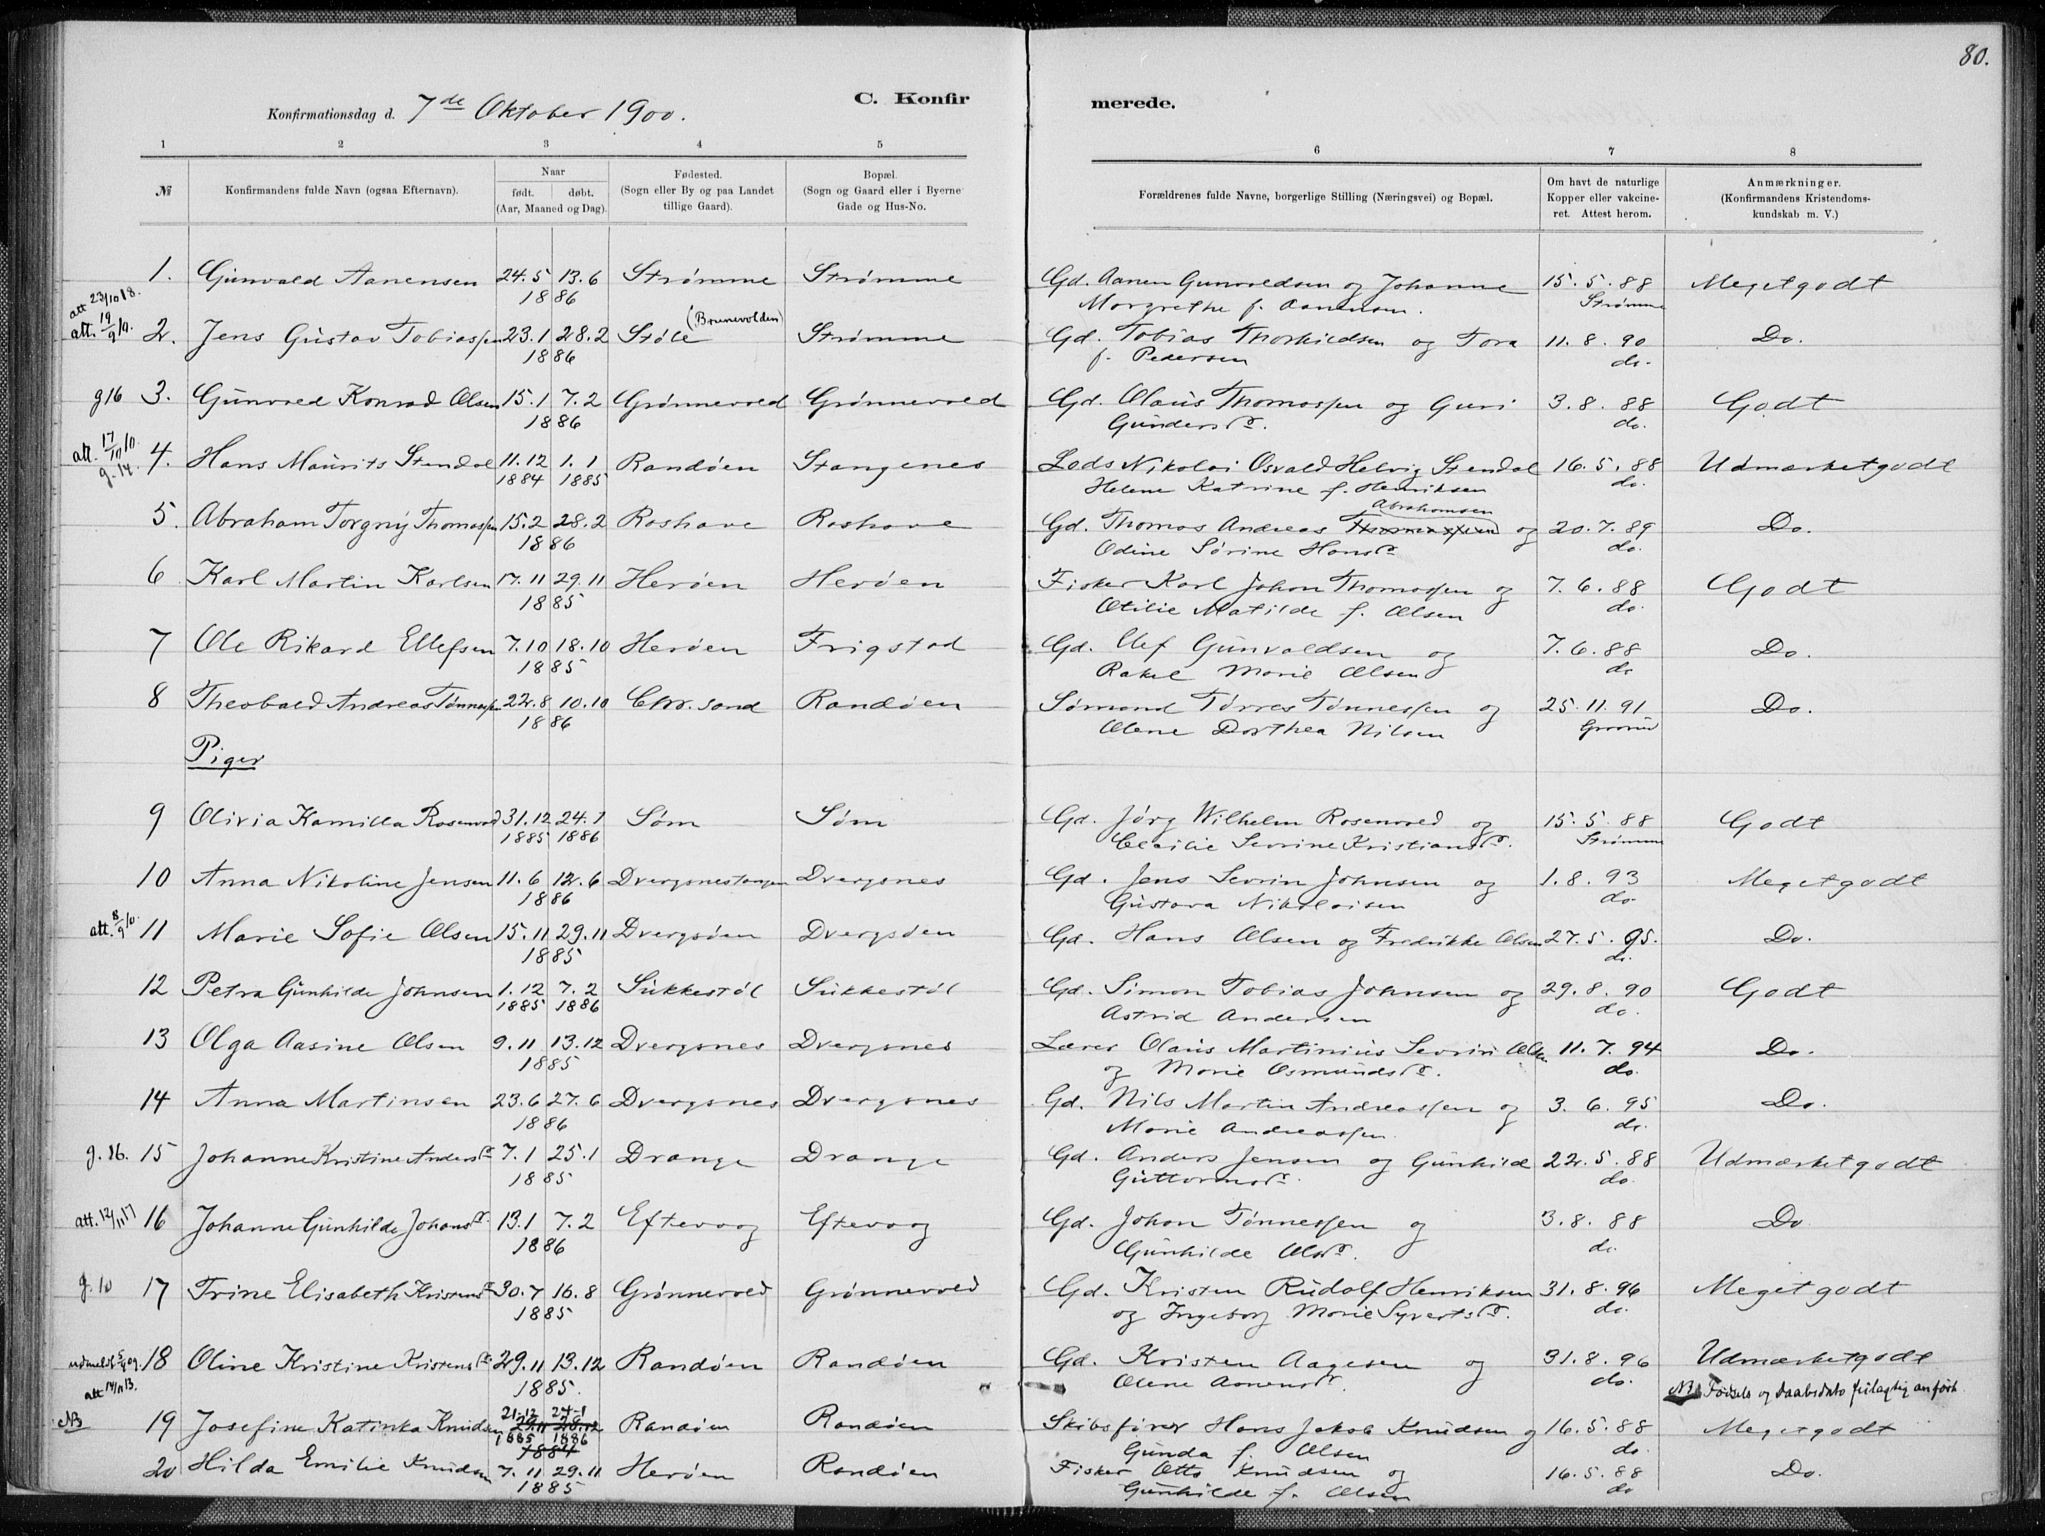 80.
C. Konfirmerede.
Konfirmationsdag d. 7de Oktober 1900.
1 2 3 4 5 6 7 8
№ Konfirmandens fulde Navn (ogsaa Efternavn). Naar født. døbt. (Aar, Maaned og Dag). Fødested. (Sogn eller By og paa Landet tillige Gaard). Bopæl. (Sogn og Gaard eller i Byerne Gade og Hus-No. Forældrenes fulde Navne, borgerlige Stilling (Næringsvei) og Bopæl. Om havt de naturlige Kopper eller vakcineret. Attest herom. Anmærkninger. (Konfirmandens Kristendomskundskab m. V.)
1. Gunvald Aanensen 24.5 13.6 Strømme Strømme Gd. Aanen Gunvaldsen og Johanne 15.5.88 Megetgodt
1886 Margrethe f. Aanensen. Strømme
att 23/10 18.
att. 19/9 10. 2. Jens Gustav Tobiassen 23.1 28.2 Støle (Brunevolden) Strømme Gd. Tobias Thorkildsen og Tora 11.8.90 Do.
1886 f. Pedersen do.
g16 3. Gunvald Konrad Olsen 15.1 7.2 Grønnevold Grønnevold Gd. Olaus Thomassen og Guri 3.8.88 Godt
1886 Gundersdr. do.
att. 17/10 10. g.14. 4. Hans Maurits Stendal 11.12 1.1 Randøen Stangenes Lods Nikolai Osvald Helvig Stendal 16.5.88 Udmærketgodt
1884 1885 Helene Katrine f. Henriksen do.
5. Abraham Torgny Thomassen 15.2 28.2 Roshave Roshave Gd. Thomas Andreas Thomassen Abrahamsen og 20.7.89 Do.
1886 Odine Sørine Hansdr. do.
6 Karl Martin Karlsen 17.11 29.11 Herøen Herøen Fisker Karl Johan Thomassen og 7.6.88 Godt
1885 Otilie Matilde f. Olsen do.
7 Ole Rikard Ellefsen 7.10 18.10 Herøen Frigstad Gd. Elef Gunvaldsen og 7.6.88 Do.
1885 Rakel Marie Olsen do
8 Theobald Andreas Tønnessen 22.8 10.10 Chr.sand Randøen Sømand Tørres Tønnessen og 25.11.91 Do.
1886 Olene Dorthea Nilsen
Piger
9 Olivia Kamilla Rosenvold 31.12 24.1 Søm Søm Gd. Jørg Wilhelm Rosenvold og 15.5.88 Godt
1885 1886 Cecilie Sevrine Kristiansdr. Strømme
10 Anna Nikoline Jensen 11.6 12.6 Dvergsnestangen Dvergsnes Gd. Jens Sevrin Johnsen og 1.8.93 Megetgodt
1886 Gustava Nikolaisen do.
att. 8/9 10. 11 Marie Sofie Olsen 15.11 29.11 Dvergsøen Dvergsøen Gd. Hans Olsen og Fredrikke Olsen 27.5.95. Do.
1885 do.
12 Petra Gunhilde Johnsen 1.12 7.2 Sukkestøl Sukkestøl Gd. Simon Tobias Johnsen og 29.8.90 Godt
1885 1886 Astrid Andersen do.
13 Olga Aasine Olsen 9.11 13.12 Dvergsnes Dvergsnes Lærer Olaus Martinius Sevrin Olsen 11.7.94 Do.
1885 og Marie Osmundsdr. do.
14 Anna Martinsen 23.6 27.6 Dvergsnes Dvergsnes Gd. Nils Martin Andreassen og 3.6.95 Do.
1886 Marie Andreassen do.
g.16. 15 Johanne Kristine Andersdr 7.1 25.1 Drange Drange Gd. Anders Jensen og Gunhild 22.5.88 Udmærketgodt
1885 Guttormsdr. do.
att. 12/11 17 16 Johanne Gunhilde Johansdr. 13.1 7.2 Eftevaag Eftevaag Gd. Johan Tønnessen og 3.8.88 Do
1886 Gunhilde Olsdr. do.
g.10 17 Trine Elisabeth Kristensdr 30.7 16.8 Grønnevold Grønnevold Gd. Kristen Rudolf Henriksen 31.8.96 Megetgodt
1885 og Ingeborg Marie Syvertsdr. do.
udmeldt 5/9 09. 18 Oline Kristine Kristensdr 29.11 13.12 Randøen Randøen Gd. Kristen Aagesen og 31.8.96 Udmærketgodt
att 14/11 13. 1885. Olene Aanensdr. do.
NB Fødsels og daabsdato feilagtig anført.
NB 19 Josefine Katinka Knudsen 21-12 24-1 Randøen Randøen Skibsfører Hans Jakob Knudsen og 16.5.88 Megetgodt
29.11 28.12 1885 1886 1884 Gunda f. Olsen do
20 Hilda Emilie Knudsen 7.11 29.11 Herøen Randøen Fisker Otto Knudsen og 16.5.88 Do.
1885 Gunhilde f. Olsen do